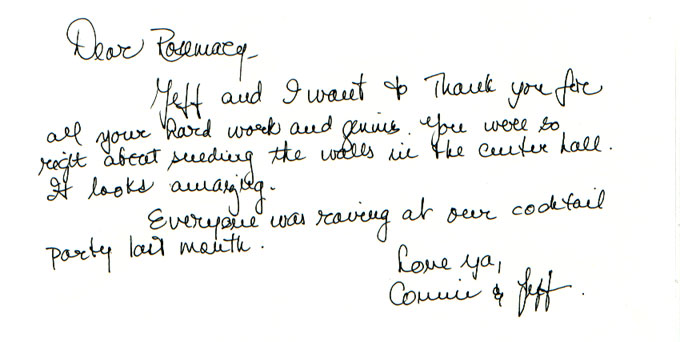 Dear Rosemary-
Jeff and I want to Thank you for
all your hard work and genius. You were so
right about sueding the walls in the center hall.
It looks amazing.
Everyone was raving at our cocktail
party last month.
Love ya,
Connie & Jeff.